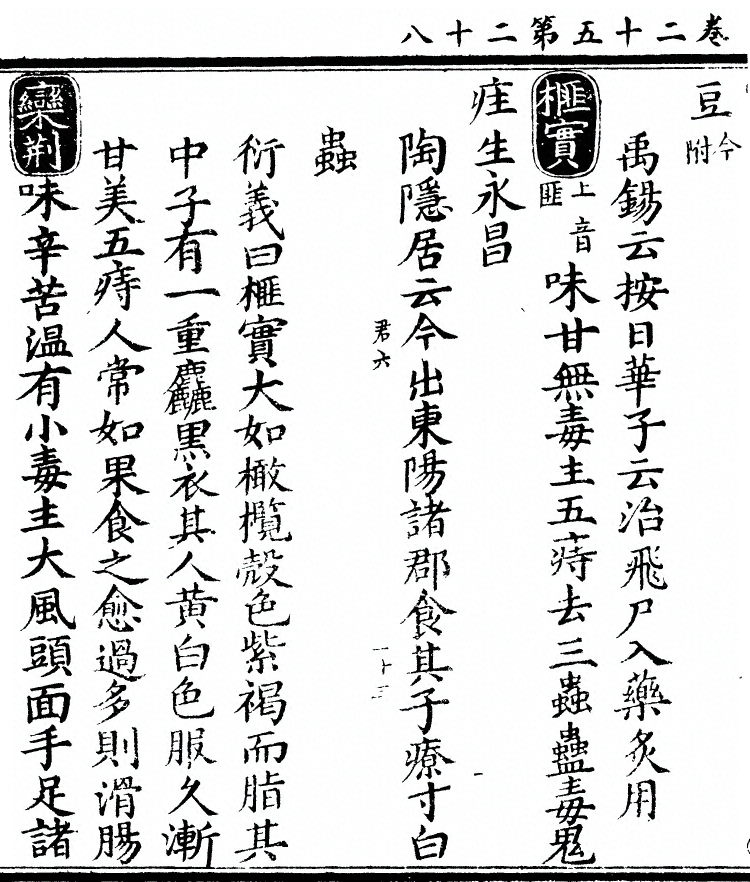 卷二十五第二十八
豆今附
禹錫云按日華子云治飛尸入藥炙用
榧實上音匪味甘無毒主五痔去三蟲蠱毒鬼
疰生永昌
陶隱居云今出東陽諸郡食其子療寸白
君六
一十三
蟲
衍義曰榧實大如橄欖殼色紫褐而脂其
中子有一重麤黑衣其人黄白色服久漸
甘美五痔人常如果食之愈過多則滑腸
欒荊味辛苦温有小毒主大風頭面手足諸